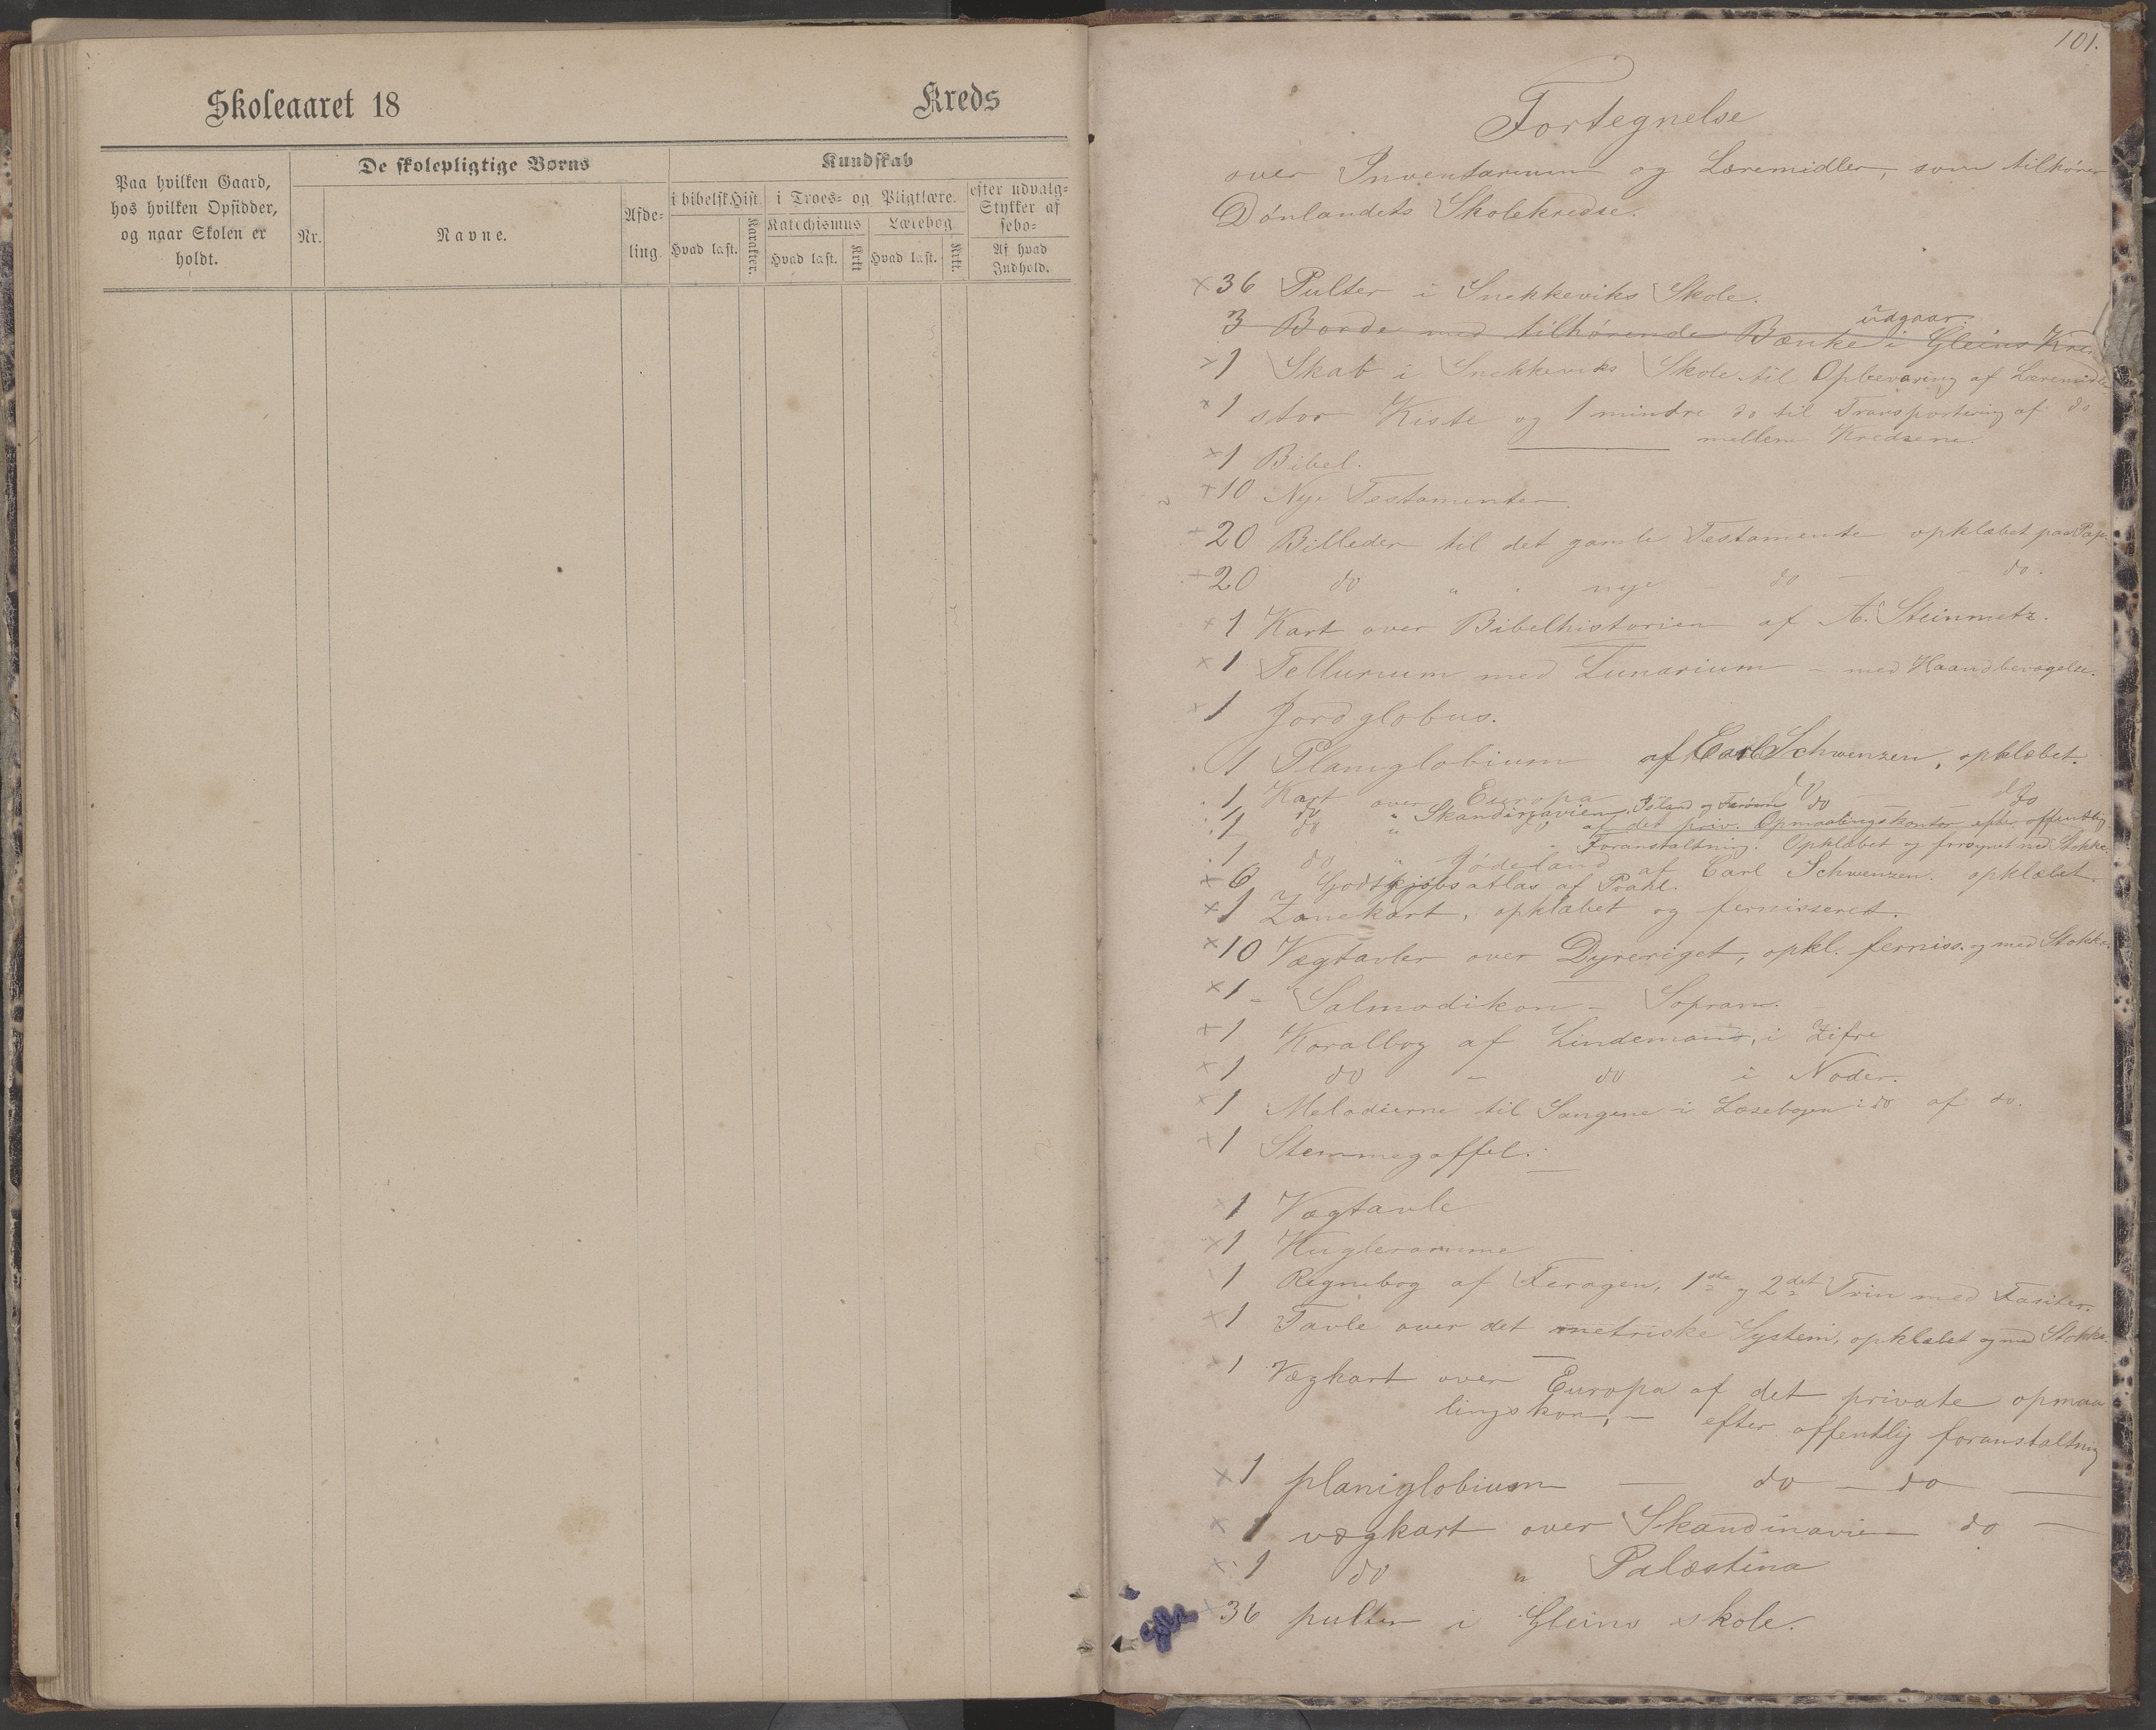 Skoleaaret 18
Kreds
Paa hvilken Gaard,
hos hvilken Opsidder,
og naar Skolen er
holdt.
De skolepligtige Børns
Nr.
Navne.
Afde-
ling.
Kundskab
i bibelsk Hist.
Hvad læst.
Karakter.
i Troes- og Pligtlære.
Katechismus
Hvad læst.
Krkt
Lærebog
Hvad læst.
Krkt.
efter udvalg-
Stykker af
sebo-
Af hvad
Indhold.
101.
Fortegnelse
over Inventarium og Læremidler, som tilhører
Dønlandets Skolekredse.
× 36 Pulter i Snekkeviks Skole.
udgaar
3 Borde med tilhørende Bænke i Gleins Kre
× 1 Skab i Snekkeviks Skole til Opbevaring af Læremidle
× 1 stor Kiste og 1 mindre do til Transportering af do
mellem Kredsene.
× 1 Bibel.
× 10 Nye Testamenter
20 Billeder til det gamle Testamente opklæbet paa Pap.
20 do " " nye - do — - do.
× 1 Kart over Bibelhistorien af A. Steinmetz.
× 1 Tellurium med Lunarium - med Haandbevægelse.
× 1 Jordglobus.
1 Planiglobium af Carl Schwenzen, opklæbet.
1 Kart over Europa do do
1 do " Skandinavien, Island og Færøerne do
1 do " af det priv. Opmaalingskontor efter offentlig
Foranstaltning. Opklæbet og forsynet med Stokke.
1 do " Jødeland af Carl Schwenzen. opklæbet.
× 6 Godtkjøbsatlas af Prahl.
× 1 Zonekart, opklæbet og fernisseret.
× 10 Vægtavler over Dyreriget, opkl. ferniss. og med Stokke.
× 1 - Salmodikon - Sopran.
× 1 Koralbog af Lindeman, i Zifre
× 1 do - do i Noder.
× 1 Melodierne til Sangene i Læsebogen i do af do.
× 1 Stemmegaffel.
× 1 Vægtavle
× 1 Kugleramme
1 Regnebog af Feragen, 1ste og 2det Trin med Fasiter.
× 1 Tavle over det metriske System, opklæbet og med Stokke.
× 1 Vægkart over Europa af det private opmaa
lingskon, — efter offentlig foranstaltning
× 1 planiglobium — do — do —
× 1 vægkart over Skandinavien do —
× 1 do " Palæstina
36 pulter i Gleins skole.